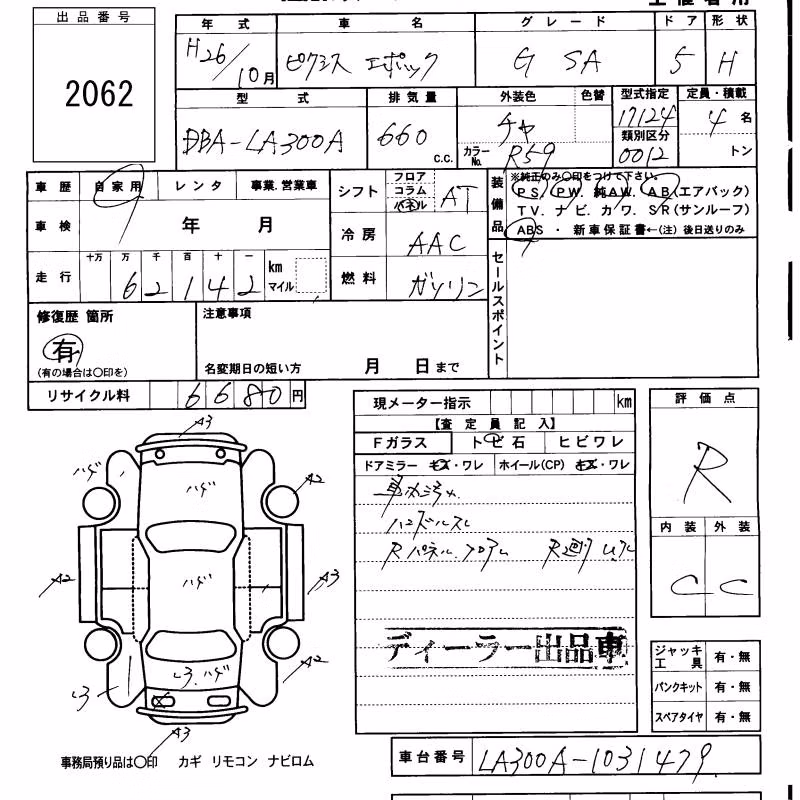 出品番号
2062
年式 車名 グレード ドア 形状
H26/10月 ピクシス エポック G SA 5 H
型式 排気量 外装色 色替 型式指定 定員・積載
DBA-LA300A 660 c.c. チヤ 17124 4名
カラーNo. R59 類別区分 0012 トン
車歴 自家用 レンタ 事業.営業車
車検 年 月
走行 十万 万 千 百 十 一 km マイル
6 2 1 4 2
シフト フロア コラム パネル AT
冷房 AAC
燃料 ガソリン
装備品
※純正のみ○印をつけて下さい。
PS. PW. 純AW. AB(エアバック)
TV. ナビ. カワ. SR(サンルーフ)
ABS ・ 新車保証書←(注) 後日送りのみ
セールスポイント
修復歴 箇所
有
(有の場合は○印を)
注意事項
名変期日の短い方 月 日まで
リサイクル料 6 6 8 0 円
現メーター指示 km
【査定員記入】
Fガラス トビ石 ヒビワレ
ドアミラー キズ・ワレ ホイール(CP) キズ・ワレ
ハンドルスレ
評価点
R
内装 外装
C C
A3
ハダ
ハダ
A2
ハダ
A2
A3
A2
A3
ディーラー出品車
ジャッキ工具 有・無
パンクキット 有・無
スペアタイヤ 有・無
事務局預り品は○印 カギ リモコン ナビロム
車台番号 LA300A-1031479